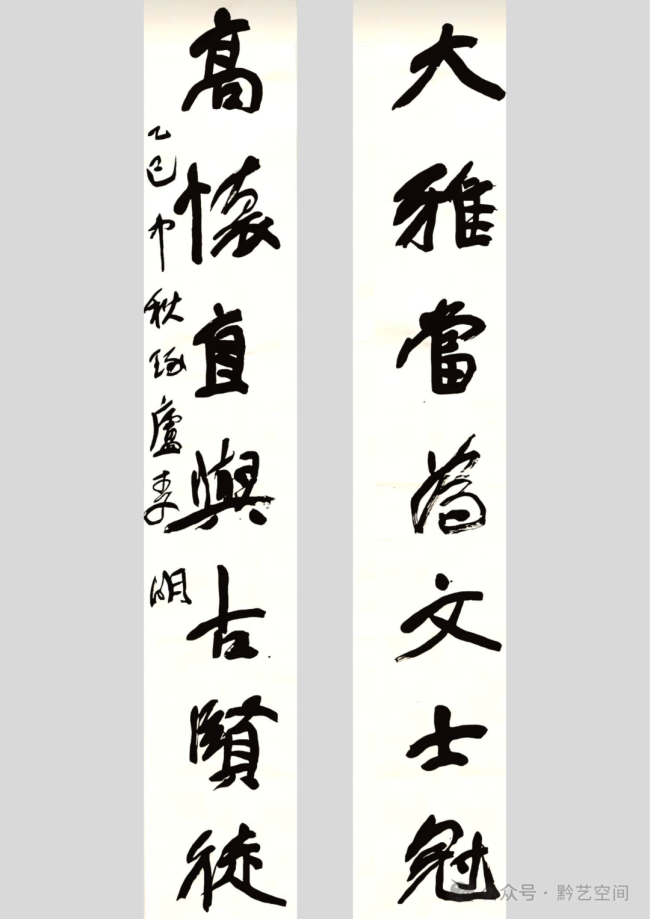 大雅當為文士冠
高懷直與古賢徒
乙巳中秋琢廬李明
公众号·黔艺空间